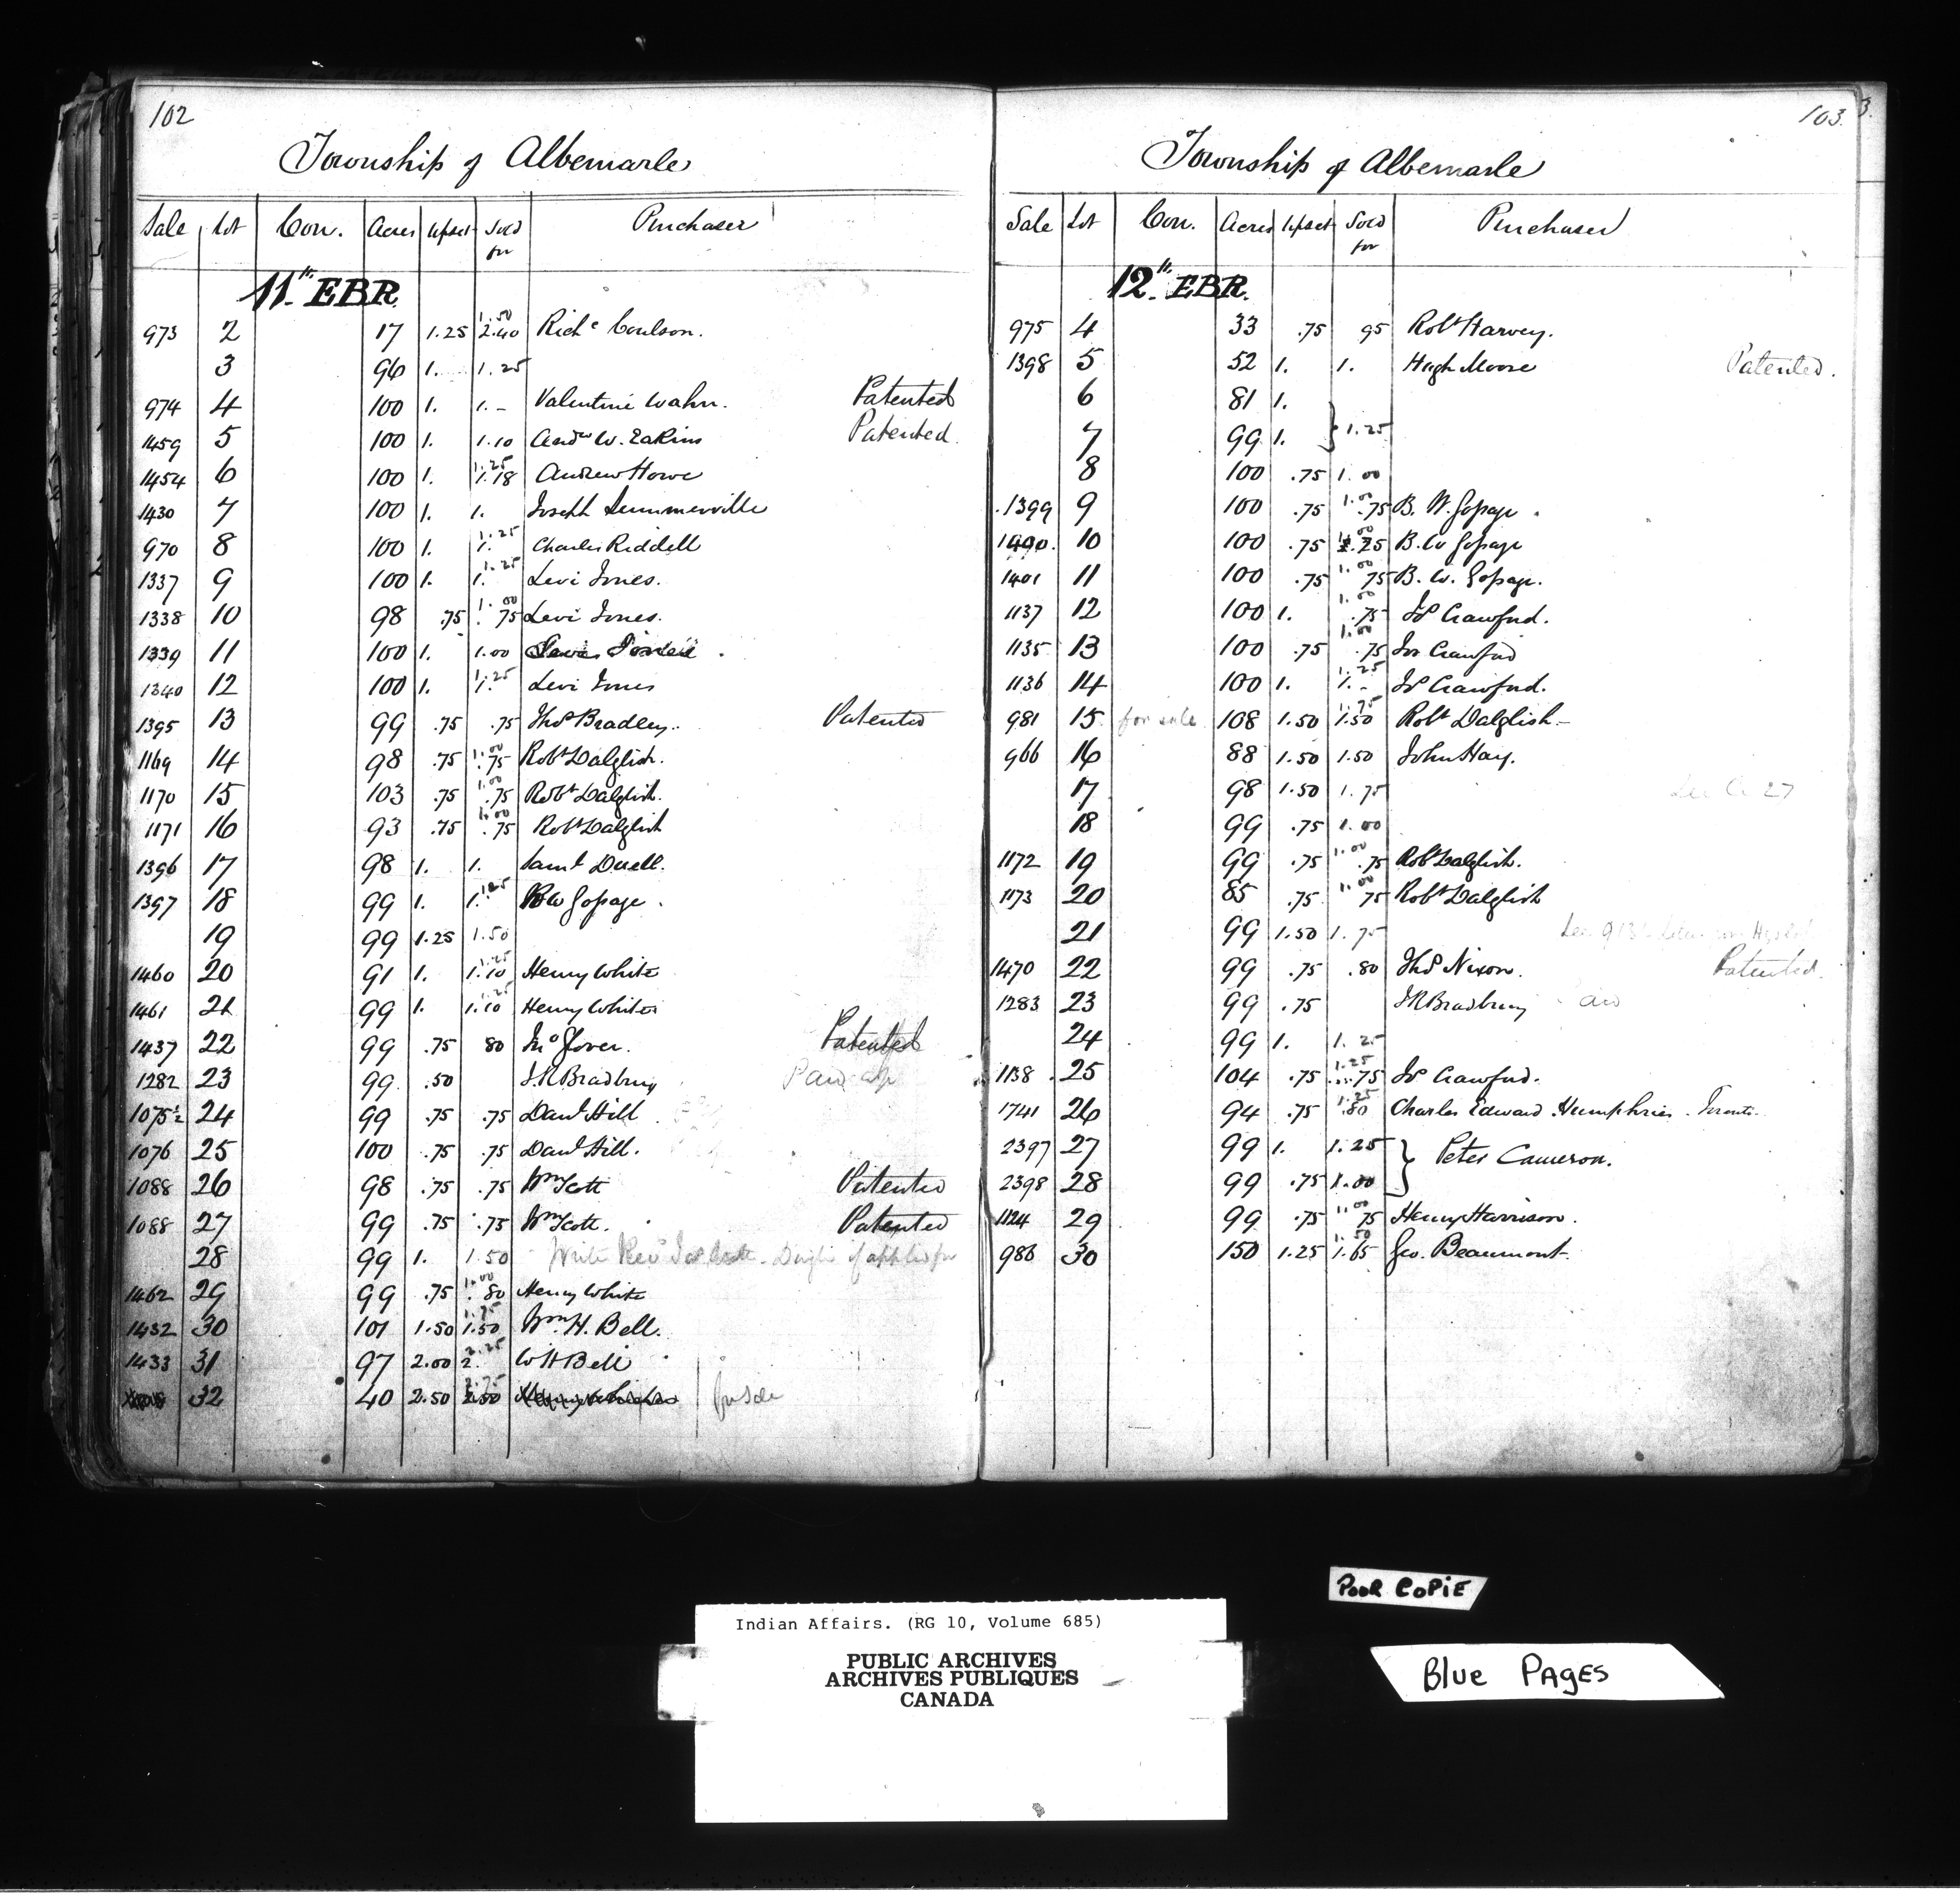 102
Township of Albemarle
Sale Lot Con. Acres Upset Sold for Purchaser
11th EBR.
973 2 17 1.25 1.50 2.40 Richd Coulson.
3 96 1. 1.25
974 4 100 1. 1. - Valentine Wahn. Patented
1459 5 100 1. 1.10 Andw W. Eakins Patented.
1454 6 100 1. 1.25 1.18 Andrew Howe
1430 7 100 1. 1. Joseph Summerville
970 8 100 1. 1.25 1. Charles Riddell
1337 9 100 1. 1.25 1. Levi Jones.
1338 10 98 .75 1.00 .75 Levi Jones.
1339 11 100 1. 1.00 Levi Jones.
1340 12 100 1. 1.25 1. Levi Jones
1395 13 99 .75 .75 Thos Bradley. Patented
1169 14 98 .75 1.00 .75 Robt Dalglish.
1170 15 103 .75 1.00 .75 Robt Dalglish.
1171 16 93 .75 1.00 .75 Robt Dalglish
1396 17 98 1. 1. Saml Duell.
1397 18 99 1. 1.25 1. BW Gopage.
19 99 1.25 1.50
1460 20 91 1. 1.25 1.10 Henry White
1461 21 99 1. 1.25 1.10 Henry White
1437 22 99 .75 80 Jno Glover. Patented
1282 23 99. .50 J.R Bradbury
1075½ 24 99 .75 .75 Danl Hill
1076 25 100 .75 .75 Danl Hill.
1088 26 98 .75 .75 Wm Scott Patented
1088 27 99 .75 .75 Wm Scott. Patented
28 99 1. 1.50 Write Revd Jas if applied for
1462 29 99 .75 1.00 .80 Henry White
1432 30 101 1.50 1.75 1.50 Wm. H. Bell.
1433 31 97 2.00 2.25 2. W H Bell
32 40 2.50 2.75 2.50 for Sale
103.
3.
Township of Albemarle
Sale Lot Con. Acres Upset Sold for Purchaser
12th EBR.
975 4 33 .75 95 Robt Harvey.
1398 5 52 1. 1. Hugh Moore Patented.
6 81 1.
7 99 1. } 1.25
8 100 .75 1.00
1399 9 100 .75 1.00 .75 B. W. Gopage.
1400. 10 100 .75 1.00 .75 B. W Gopage
1401 11 100 .75 1.00 75 B. W. Gopage.
1137 12 100 1. 1.00 .75 Js Crawford.
1135 13 100 .75 1.00 .75 Js Crawford
1136 14 100 1. 1.25 1. - Js Crawford.
981 15 for sale 108 1.50 1.75 1.50 Robt Dalglish.-
966 16 88 1.50 1.50 John Hay.
17 98 1.50 1.75 27
18 99 .75 1.00
1172 19 99 .75 1.00 .75 Robt Dalglish.
1173 20 85 .75 1.00 75 Robt Dalglish
21 99 1.50 1.75
1470 22 99 .75 .80 Thos Nixon. Patented.
1283 23 99 .75 J R Bradbury
24 99 1. 1.25
1138 25 104 .75 1.25 .75 Js Crawford.
1741 26 94 .75 1.25 .80 Charles Edward Humphries. Toronto.
2397 27 99 1. 1.25 } Peter Cameron.
2398 28 99 .75 1.00
1124 29 99 .75 1.00 75 Henry Harrison.
986 30 150 1.25 1.50 1.65 Geo. Beaumont-
POOR COPiE
Blue PAGES
Indian Affairs. (RG 10, Volume 685)
PUBLIC ARCHIVES
ARCHIVES PUBLIQUES
CANADA